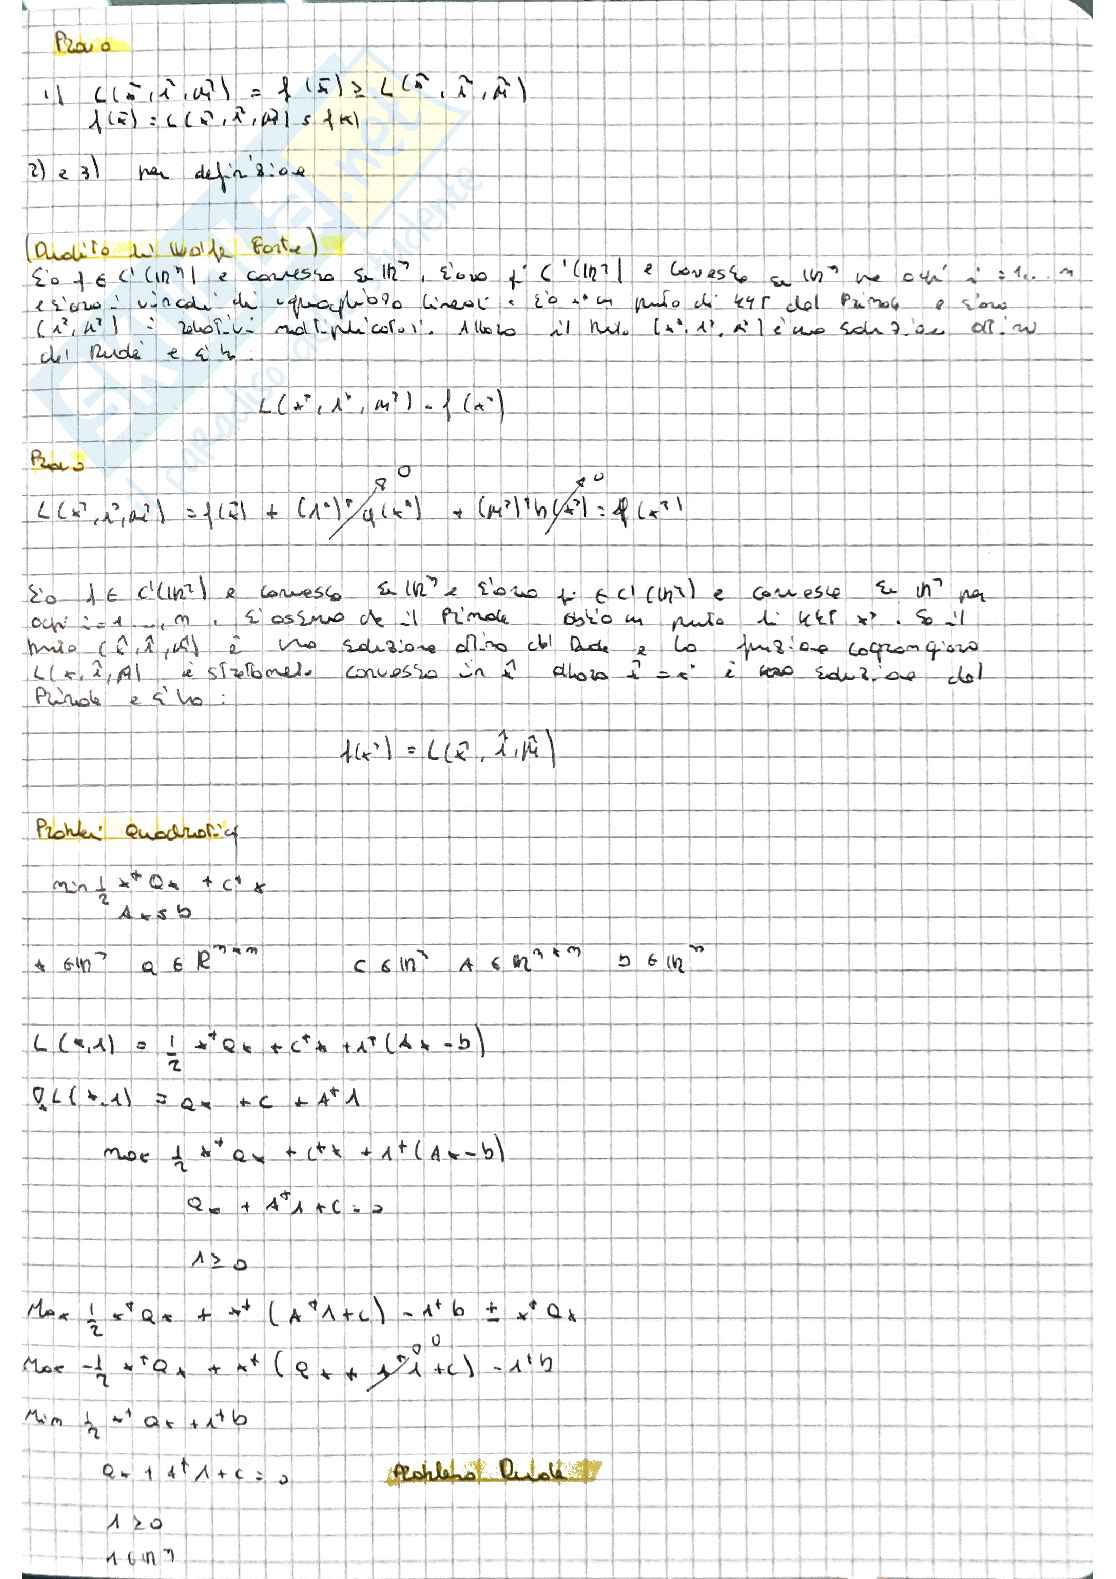 Prova
1) L(x̄, λ*, μ*) = f(x̄) ≥ L(x̄, λ̃, μ̃)
f(x̄) = L(x̄, λ̃, μ̃) ≤ f(x)
2) e 3) per definizione
(Dualità di Wolfe Forte)
Sia f ∈ C¹(ℝⁿ) e convessa su ℝⁿ, siano C¹(ℝⁿ) e convesse su ℝⁿ per ogni i = 1...
e siano i vincoli di uguaglianza lineari. Sia x* un punto di KKT del Primale e siano
(λ*, μ*) i relativi moltiplicatori. Allora il punto (x*, λ*, μ*) è una soluzione ottima
del Duale e si ha:
L(x*, λ*, μ*) = f(x*)
Prova
L(x*, λ*, μ*) = f(x̄) + (λ*)ᵀ g(x*) → 0 + (μ*)ᵀ h(x*) → 0 = f(x*)
Sia f ∈ C¹(ℝⁿ) e convessa su ℝⁿ e siano ∈ C¹(ℝⁿ) e convesse su ℝⁿ per
ogni i = 1..., m. Si assuma che il Primale abbia un punto di KKT x*. Se il
punto (x̂, λ̂, μ̂) è una soluzione ottima del Duale e la funzione lagrangiana
L(x, λ̂, μ̂) è strettamente convessa in x̂ allora x̂ = x* è soluzione del
Primale e si ha:
f(x*) = L(x̂, λ̂, μ̂)
Problemi Quadratici
min ½ xᵀQx + Cᵀx
Ax ≤ b
x ∈ ℝⁿ Q ∈ ℝⁿˣⁿ C ∈ ℝⁿ A ∈ ℝᵐˣⁿ b ∈ ℝᵐ
L(x,λ) = ½ xᵀQx + Cᵀx + λᵀ(Ax - b)
∇ₓL(x,λ) = Qx + C + Aᵀλ
max ½ xᵀQx + Cᵀx + λᵀ(Ax - b)
Qx + Aᵀλ + C = 0
λ ≥ 0
Max ½ xᵀQx + xᵀ(Aᵀλ + C) - λᵀb ± xᵀQx
Max -½ xᵀQx + xᵀ(Qx + Aᵀλ + C) → 0 - λᵀb
Min ½ xᵀQx + λᵀb
Qx + Aᵀλ + C = 0 Problema Duale
λ ≥ 0
λ ∈ ℝᵐ